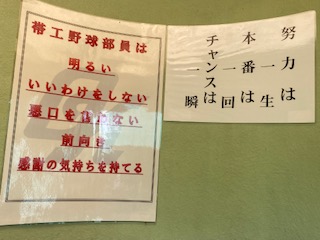 帯工野球部員は
明るい
いいわけをしない
悪口を言わない
前向き
感謝の気持ちを持てる
努力は一生
本番は一回
チャンスは一瞬